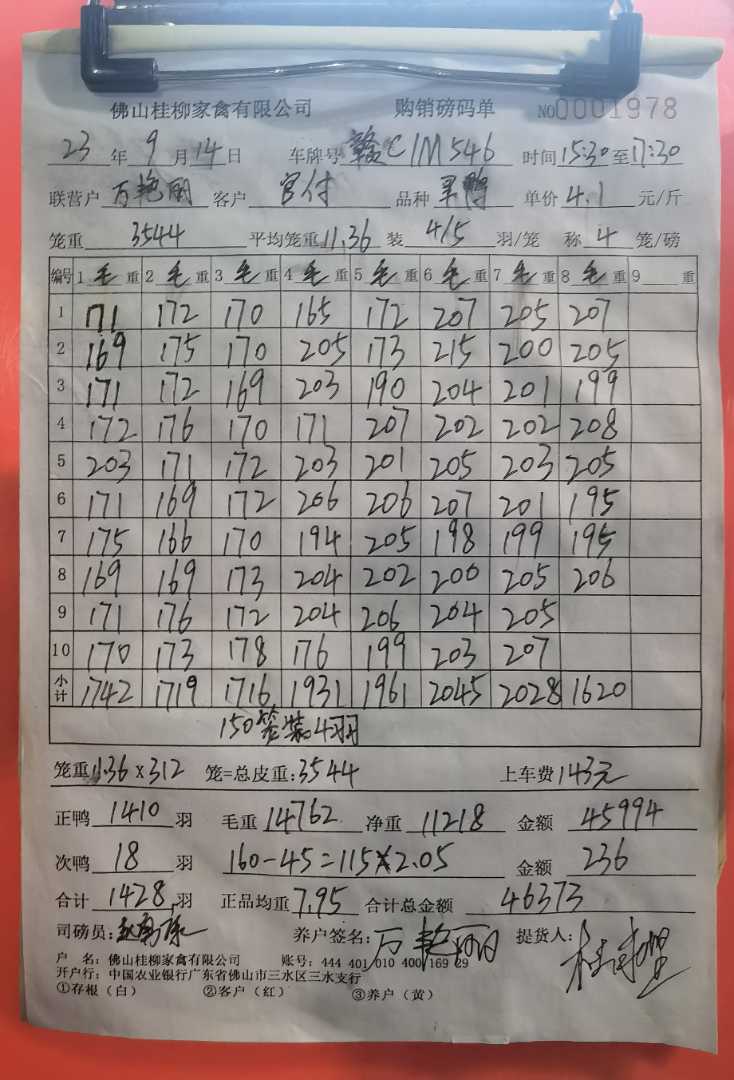 佛山桂柳家禽有限公司 购销磅码单 NO0001978
23年9月14日 车牌号 赣C1M546 时间15:30至17:30
联营户 万艳丽 客户 宫付 品种 单价4.1元/斤
笼重 3544 平均笼重11.36 装 4/5 羽/笼 称 4 笼/磅
编号 1毛重 2毛重 3毛重 4毛重 5毛重 6毛重 7毛重 8毛重 9重
1 171 172 170 165 172 207 205 207
2 169 175 170 205 173 215 200 205
3 171 172 169 203 190 204 201 199
4 172 176 170 171 207 202 202 208
5 203 171 172 203 201 205 203 205
6 171 169 172 206 206 207 201 195
7 175 166 170 194 205 198 199 195
8 169 169 173 204 202 200 205 206
9 171 176 172 204 206 204 205
10 170 173 178 176 199 203 207
小计 1742 1719 1716 1931 1961 2045 2028 1620
150笼装4羽
笼重11.36×312 笼=总皮重:3544 上车费143元
正鸭1410羽 毛重14762 净重11218 金额45994
次鸭18羽 160-45=115×2.05 金额236
合计1428羽 正品均重7.95 合计总金额46373
司磅员: 养户签名:万艳丽 提货人:
户 名:佛山桂柳家禽有限公司 账号:444 401 010 400 169 29
开户行:中国农业银行广东省佛山市三水区三水支行
①存根(白) ②客户(红) ③养户(黄)